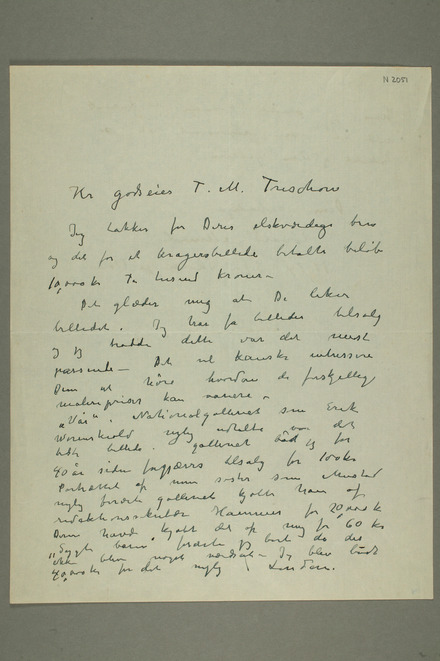 N 2051
Hr godseier T. M. Treschow
Jeg takker for Deres elskværdige brev
og det for et Kragerøbillede betalte beløb
10,000 kr Ti tusend Kroner –
Det glæder mig at De liker
billedet. Jeg har få billeder tilsalg
og jeg trodde dette var det mest
passende – Det vil kanske interessere
Dem at höre hvordan de forskjellige
maleripriser kan variere –
„Vår" i Nationalgalleriet som Erik
Werenskiold nylig udtalte var det
beste billede i galleriet bød jeg for
40 år siden forgjæves tilsalg for 100 kr
Portrættet af min søster som Mustad
nylig forærte galleriet kjøbte han af
redaktionssekretær Hammer for 20,000 kr
Denne havde kjøbt det af mig for 60 kr
„Sygt barn" forærte jeg bort da det
ikke blev noget værdsat – Jeg blev budt
40,000 kr for det nylig i London.